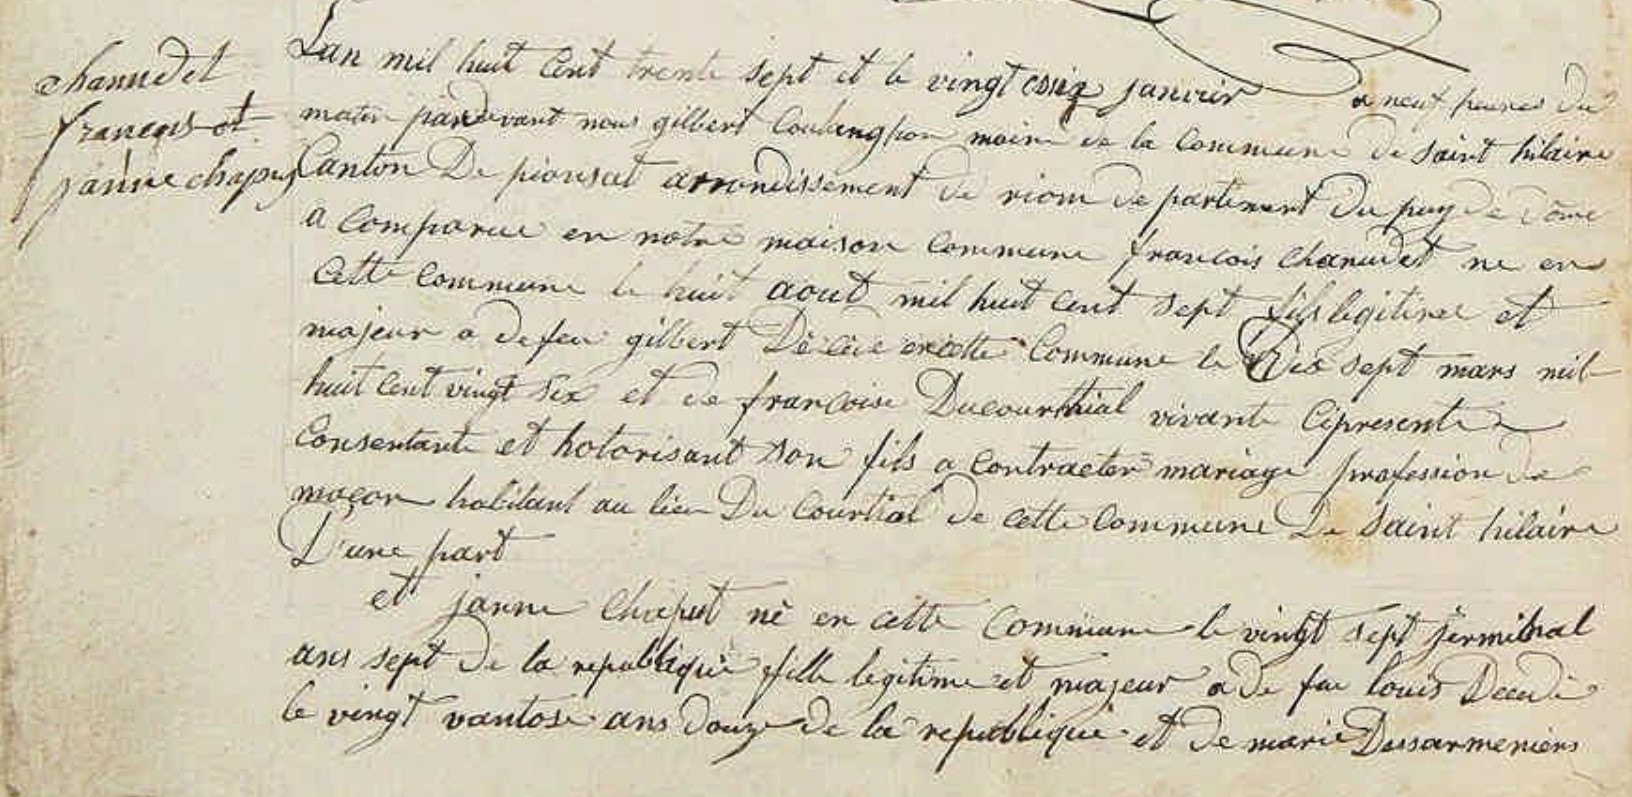 chanudet
françois et
janne chaput
Lan mil huit Cent trente sept et le vingt janvier a neuf heures du
matin pardevant nous gilbert maire de la Commune de Saint hilaire
Canton De pionsat arrondissement de riom departement Du puy de Dôme
a comparue en notre maison Commune françois Chanudet ne en
Cette Commune le huit aout mil huit cent sept fils legitime et
majeur a defeu gilbert Décéde encette Commune le Dix sept mars mil
huit Cent vingt Six et de françoise Ducourthial vivante Cipresente
Consentante et hotorisant son fils a Contracter mariage profession de
maçon habitant au lieu Du Courtial de cette Commune De Saint hilaire
D'une part
et janne Chaput nè en cette Commune le vingt sept jerminal
ans sept de la republique fille legitime et majeur a de feu louis Decede
le vingt vantose ans douze de la republique et de marie Dessarmeniens